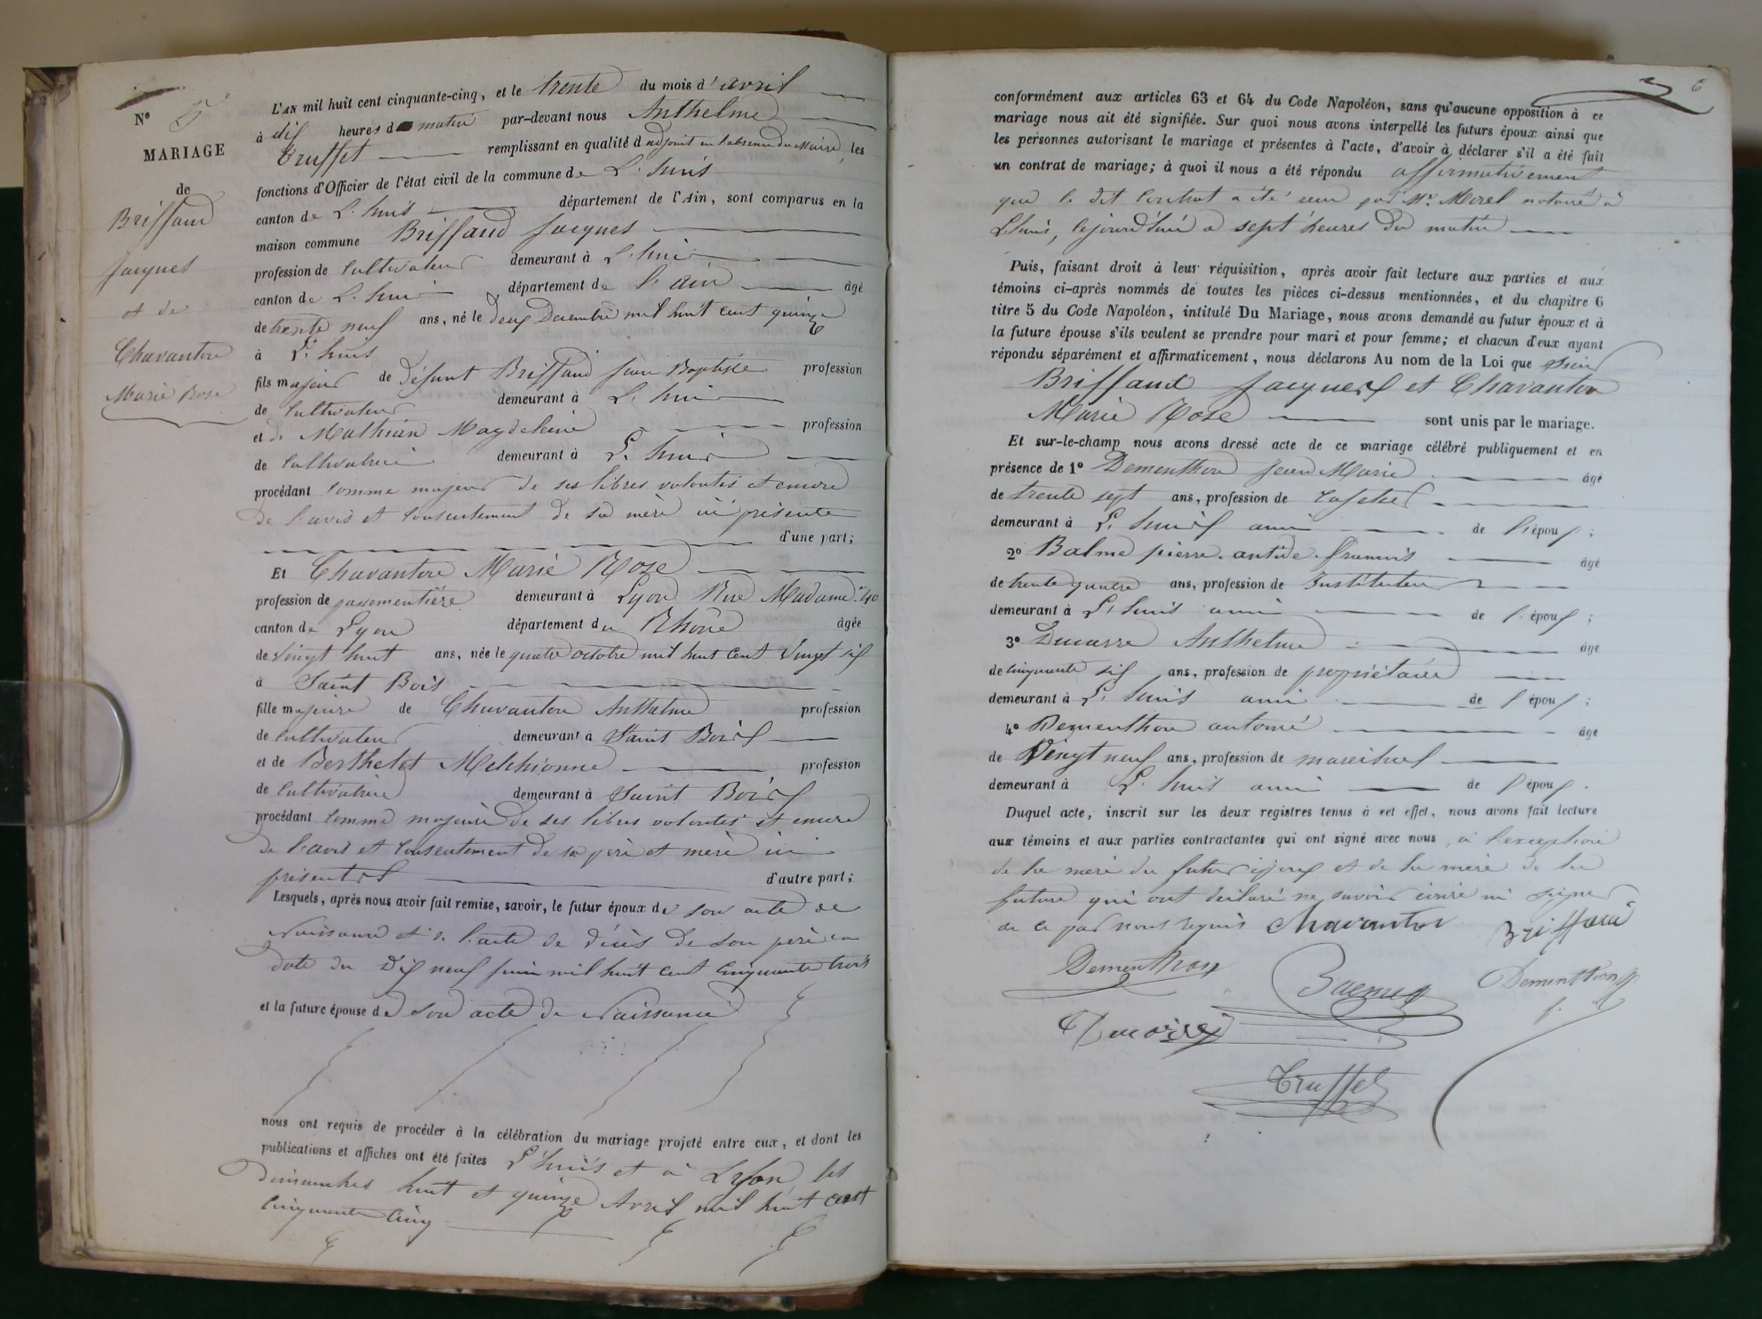 N° 5
MARIAGE
de
Briffaud
Jacques
et de
Chavanton
Marie Rose
L'AN mil huit cent cinquante-cinq, et le trente du mois d'avril
à dix heures d matin par-devant nous Anthelme
Truffet remplissant en qualité d'adjoint en l'absence du Maire, les
fonctions d'Officier de l'état civil de la commune de L'huis
canton de L'huis département de l'Ain, sont comparus en la
maison commune Briffaud Jacques
profession de cultivateur demeurant à L'huis
canton de L'huis département de l'ain âgé
de trente neuf ans, né le deux Decembre mil huit cent quinze
à L'huis
fils majeur de défunt Briffaud Jean Baptiste profession
de cultivateur demeurant à L'huis
et de Mathian Magdeleine profession
de cultivatrice demeurant à L'huis
procédant comme majeur de ses libres volontés et encore
de l'avis et consentement de sa mère ici présente
d'une part;
Et Chavanton Marie Rose
profession de passementière demeurant à Lyon Rue Madame 40
canton de Lyon département du Rhône âgée
de vingt huit ans, née le quatre octobre mil huit cent vingt six
à Saint Bois
fille majeure de Chavanton Anthelme profession
de cultivateur demeurant à Saint Bois
et de Berthelet Melchionne profession
de cultivatrice demeurant à Saint Bois
procédant comme majeure de ses libres volontés et encore
de l'avis et consentement de ses père et mère ici
présents d'autre part;
Lesquels, après nous avoir fait remise, savoir, le futur époux de son acte de
Naissance et de l'acte de décès de son père en
date du Dix neuf juin mil huit cent cinquante trois
et la future épouse de son acte de Naissance
nous ont requis de procéder à la célébration du mariage projeté entre eux, et dont les
publications et affiches ont été faites L'huis et à Lyon, les
dimanches huit et quinze Avril mil huit cent
cinquante cinq
6
conformément aux articles 63 et 64 du Code Napoléon, sans qu'aucune opposition à ce
mariage nous ait été signifiée. Sur quoi nous avons interpellé les futurs époux ainsi que
les personnes autorisant le mariage et présentes à l'acte, d'avoir à déclarer s'il a été fait
un contrat de mariage; à quoi il nous a été répondu affirmativement
que le dit contrat a été reçu par Mr. Morel notaire à
L'huis, aujourd'hui à sept heures du matin
Puis, faisant droit à leur réquisition, après avoir fait lecture aux parties et aux
témoins ci-après nommés de toutes les pièces ci-dessus mentionnées, et du chapitre 6
titre 5 du Code Napoléon, intitulé Du Mariage, nous avons demandé au futur époux et à
la future épouse s'ils veulent se prendre pour mari et pour femme; et chacun d'eux ayant
répondu séparément et affirmativement, nous déclarons Au nom de la Loi que
Briffaux Jacques et Chavanton
Marie Rose sont unis par le mariage.
Et sur-le-champ nous avons dressé acte de ce mariage célébré publiquement et en
présence de 1° Dementhon Jean Marie âgé
de trente sept ans, profession de cafetier
demeurant à L'huis ami de l'époux;
2° Balme pierre antide françois âgé
de trente quatre ans, profession de Instituteur
demeurant à L'huis ami de l'époux;
3° Ducarre Anthelme âgé
de cinquante six ans, profession de propriétaire
demeurant à L'huis ami de l'époux;
4° Dementhon antoine âgé
de Vingt neuf ans, profession de marechal
demeurant à L'huis ami de l'époux.
Duquel acte, inscrit sur les deux registres tenus à cet effet, nous avons fait lecture
aux témoins et aux parties contractantes qui ont signé avec nous, à l'exception
de la mère du futur époux et de la mère de la
future qui ont déclaré ne savoir écrire ni signer
de ce par nous requis Chavanton Briffaud
Dementhon Dementhon
Truffet